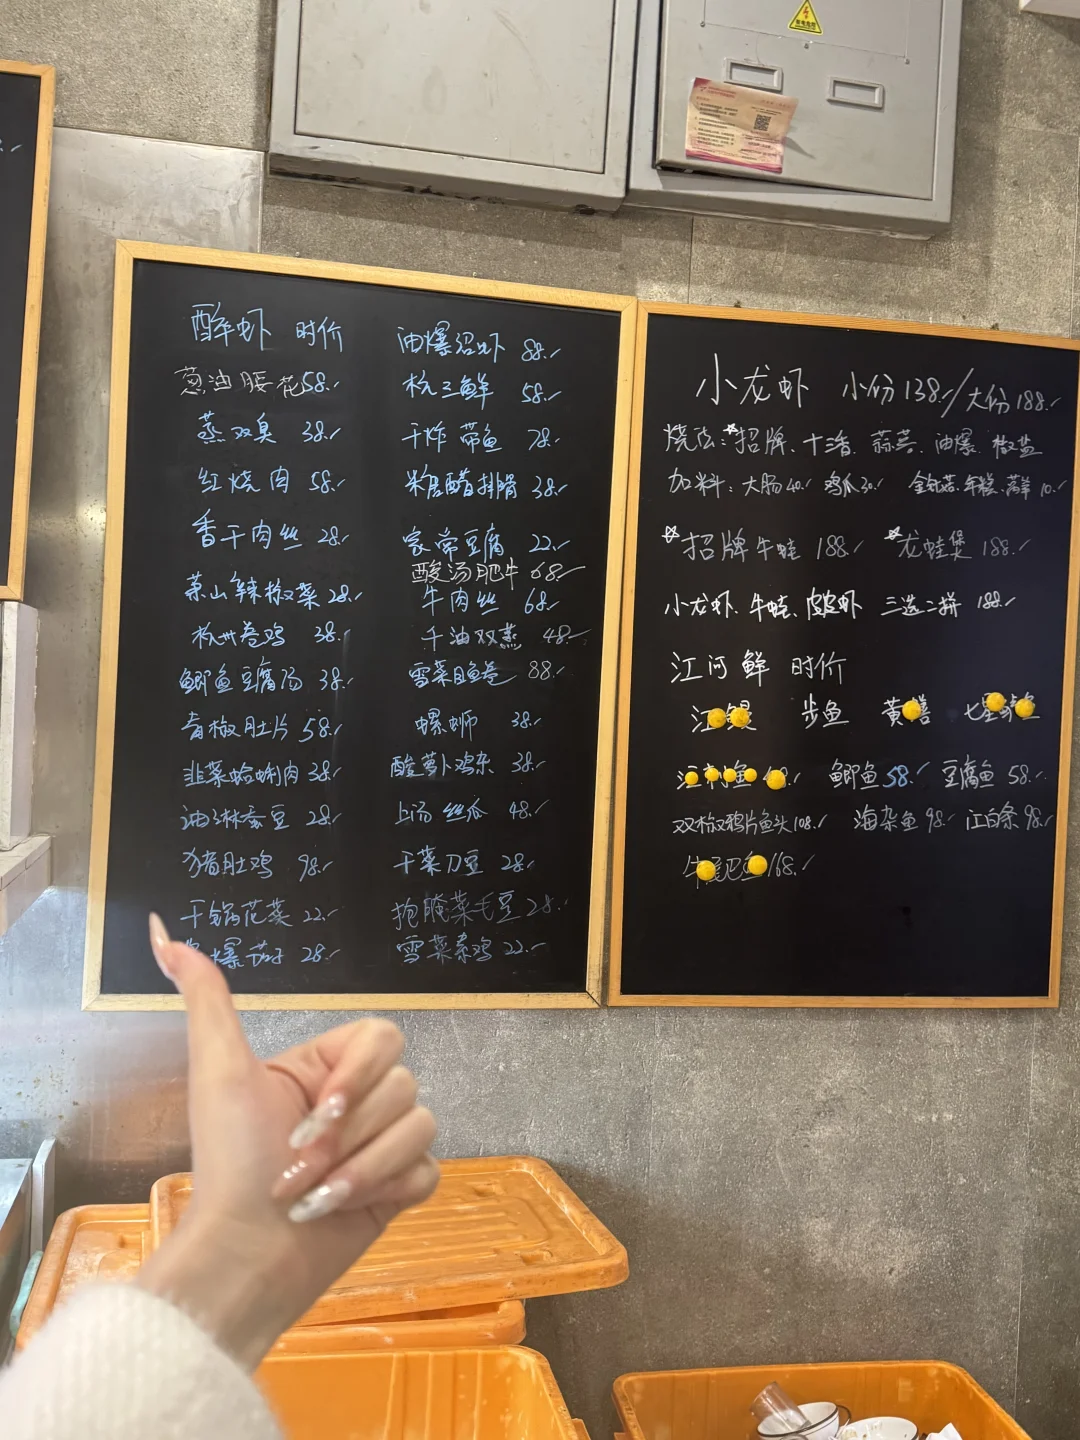 醉虾 时价
葱油腰花58.
蒸双臭 38.
红烧肉 58.
香干肉丝 28.
莱山辣椒菜 28.
杭州卷鸡 38.
鲫鱼豆腐汤 38.
青椒肚片 58.
韭菜蛤蜊肉 38.
油淋蚕豆 28.
猪肚鸡 98.
干锅花菜 22.
爆茄子 28.
油爆沼虾 88.
杭三鲜 58.
干炸带鱼 78.
米醋排骨 38.
家常豆腐 22.
酸汤肥牛 68.
牛肉丝 68.
千油双蒸 48.
雪菜目鱼卷 88.
螺蛳 38.
酸萝卜鸡杂 38.
上汤丝瓜 48.
干菜刀豆 28.
抱腌菜毛豆 28.
雪菜素鸡 22.
小龙虾 小份138./大份188.
烧法:招牌、十三香、蒜蓉、油爆、椒盐
加料:大肠40. 鸡爪30. 金针菇.年糕.莴笋 10.
招牌牛蛙 188. 龙蛙煲 188.
小龙虾、牛蛙、皮皮虾 三选二拼 188.
江河鲜 时价
江鳗 步鱼 黄鳝 七星
江刺鱼 鲫鱼 58. 豆腐鱼 58.
双椒鸦片鱼头 108. 海杂鱼 98. 江白条 98.
168.